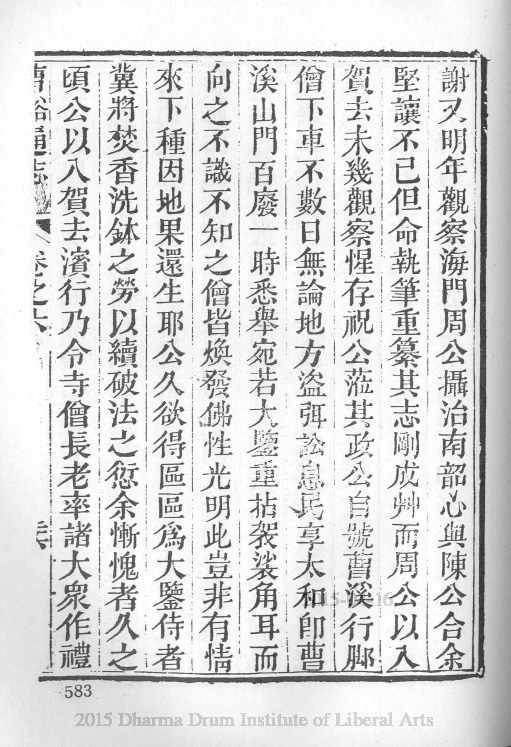 謝又明年觀察海門周公攝治南韶心與陳公合余
堅讓不已但命執筆重纂其志剛成艸而周公以入
賀去未幾觀察惺存祝公蒞其政公自號曹溪行脚
僧下車不數日無論地方盜弭訟息民享太和卽曹
溪山門百廢一時悉舉宛若大鑒重拈袈裟角耳而
向之不識不知之僧皆煥發佛性光明此豈非有情
來下種因地果還生耶公久欲得區區爲大鑒侍者
冀將焚香洗鉢之勞以續破法之愆余慚愧者久之
頃公以入賀去濱行乃令寺僧長老率諸大眾作禮
曹谿通志 卷之六
583
2015 Dharma Drum Institute of Liberal Arts